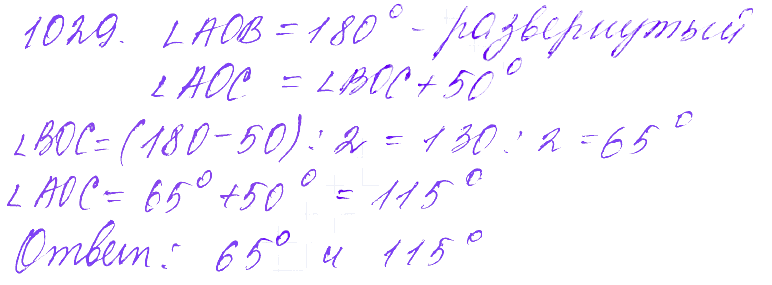 1029. ∠AOB = 180° - развернутый
∠AOC = ∠BOC + 50°
∠BOC = (180 - 50) : 2 = 130 : 2 = 65°
∠AOC = 65° + 50° = 115°
Ответ: 65° и 115°